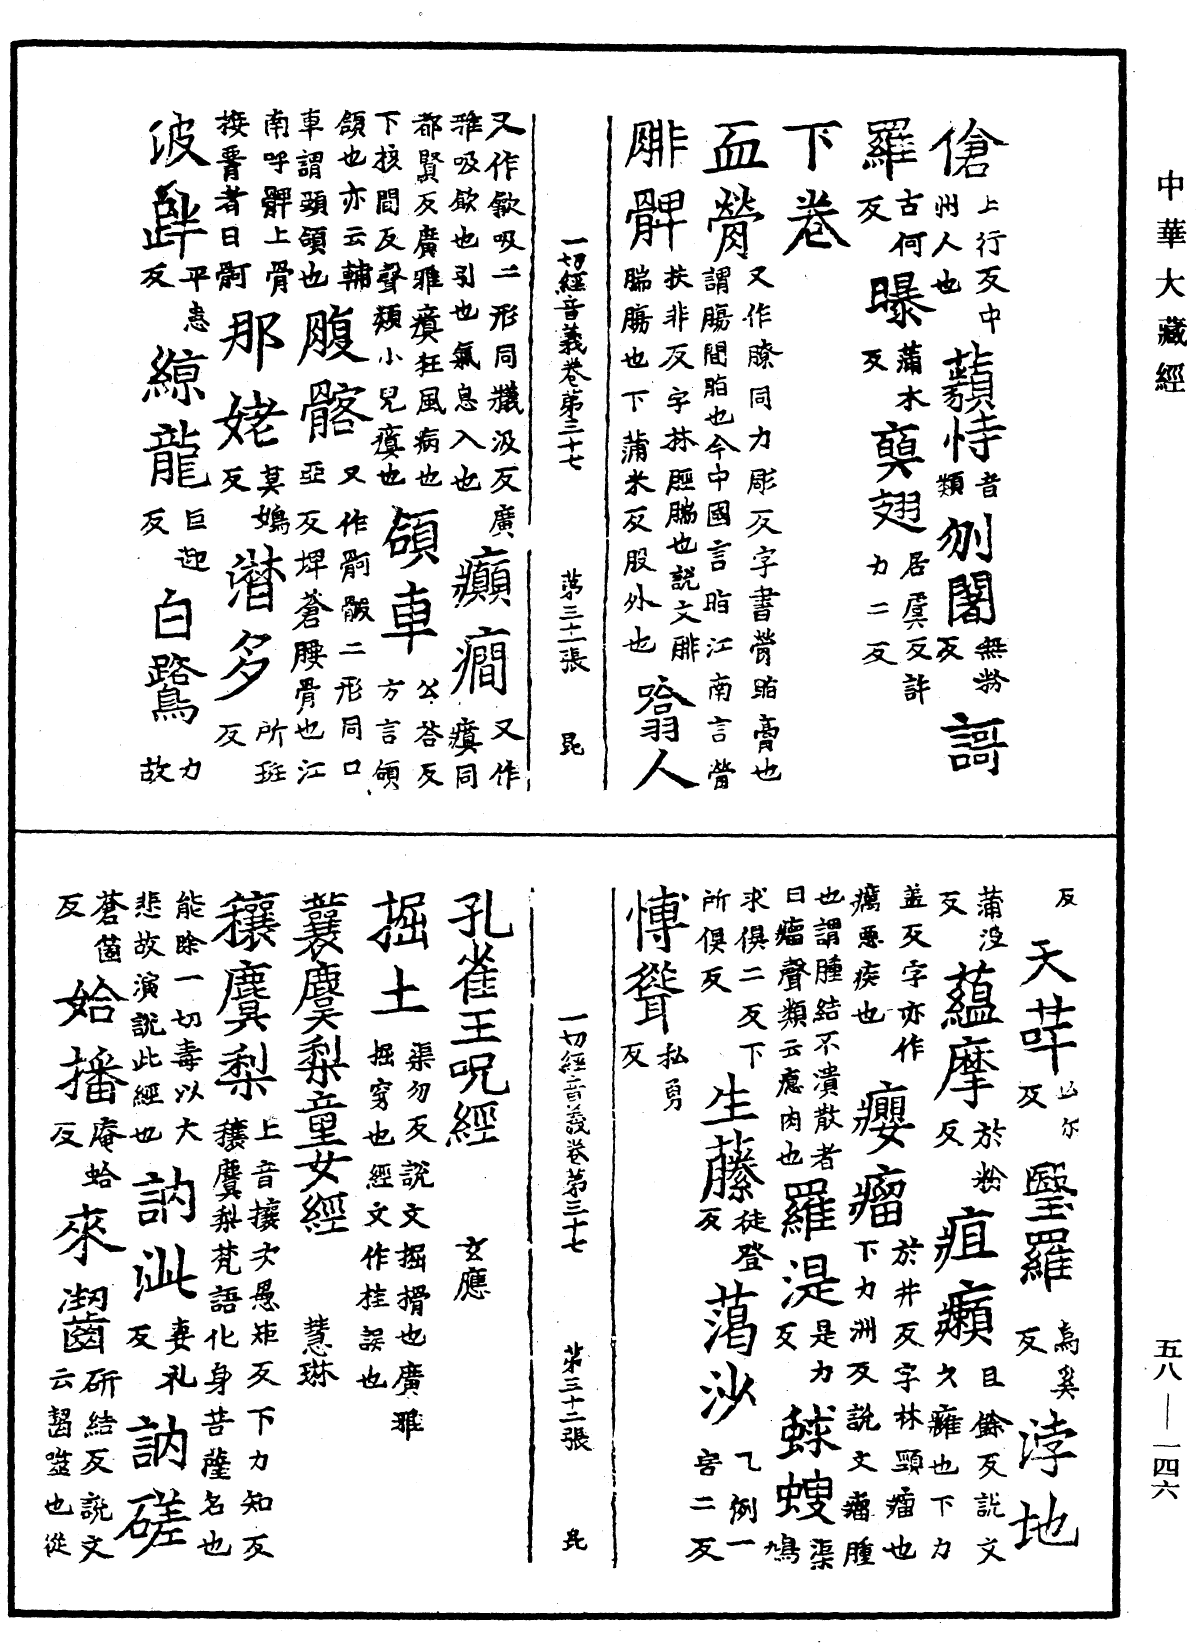 中華大藏經
傖 上行反中州人也 蘱恃 音類 刎闍 無粉反 謌
羅 古何反 曝 蒲木反 㚖翅 居㒁反許力二反
下卷
血膋 又作膫同力彫反字書膋脂膏也謂腸間脂也今中國言脂江南言膋
腓髀 扶非反字林脛腨也說文腓腨腸也下蒲米反股外也 噏人
又作㰱吸二形同羲汲反廣雅吸飲也引也氣息入也 癲癇 又作瘨同
都賢反廣雅瘨狂風病也下核間反聲類小兒瘨也 頷車 公荅反方言頷
頷也亦云輔車謂頭頷也 䐡髂 又作䯊骻二形同口亞反埤蒼腰骨也江
南呼髀上骨接䯗者曰䯊 那姥 莫嫣反 潸多 所班反
波 平患反 綡龍 巨迎反 白鷺 力故
一切經音義卷第三十七 第三十一張 昆
反 天芉 亾尒反 瑿羅 烏奚反 浡地
蒲沒反 蘊摩 於粉反 疽癩 且餘反說文久癰也下力
盖反字亦作癘惡疾也 癭瘤 於井反字林頸瘤也下力洲反說文瘤腫
也謂腫結不潰散者曰瘤聲類云瘜肉也 羅湜 是力反 蛷螋 渠鳩
求俱二反下所俱反 生藤 徒登反 蔼沙 乙例一害二反
愽聳 私勇反
一切經音義卷第三十七 第三十二張 昆
孔雀王呪經 玄應
掘土 渠勿反說文掘搰也廣雅掘穿也經文作挂誤也
蘘麌梨童女經 慧琳
穰麌梨 上音攘次愚矩反下力知反穰麌梨梵語化身菩薩名也
能除一切毒以大悲故演說此經也 訥泚 妻礼反 訥磋
蒼箇反 始播 庵蛤反 來齧 研結反說文云齧噬也從
五八—一四六